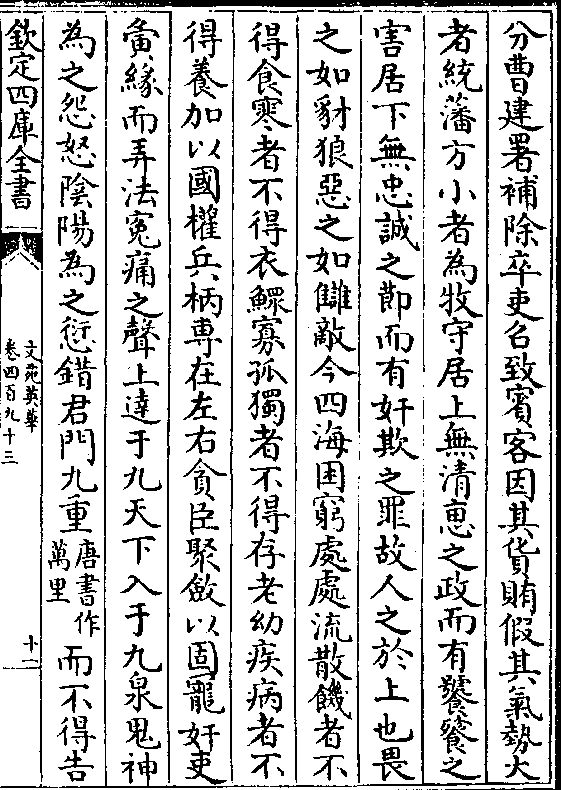 分曹建署補除卒吏召致賓客因其貨賄假其氣勢大
者統藩方小者為牧守居上無清恵之政而有饕餮之
害居下無忠誠之節而有奸欺之罪故人之於上也畏
之如豺狼惡之如讎敵今四海困窮處處流散饑者不
得食寒者不得衣鰥寡孤獨者不得存老幼疾病者不
得養加以國權兵柄専在左右貪臣聚斂以固寵奸吏
夤緣而弄法寃痛之聲上達于九天下入于九泉鬼神
為之怨怒陰陽為之愆錯君門九重唐書作萬里而不得告
欽定四庫全書
文苑英華
卷四百九十三
十一